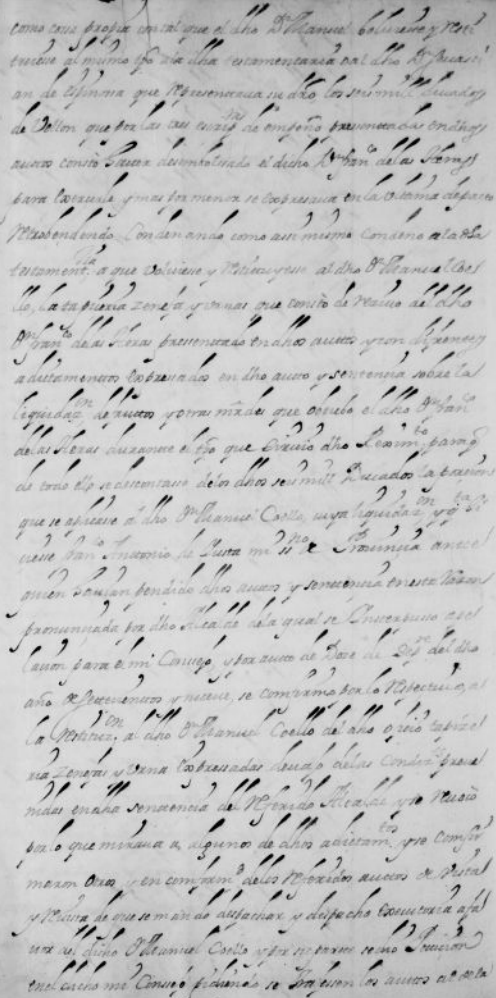 como cosa propia con tal que el dho Dn Manuel bolviesse y resti
tuiesse al mismo tpo a la dha testamentaria o al dho Dn Sevasti
an de Espinosa que representava su dro los seis mill ducados
de Vellon que por las tres escrip.ras de empeño presentadas en dhos
autos constó haver desembolsado el dicho Dn Fran.co de las Heras
para y mas por menor se expresava en la ultima de pacto
Retrobendendo Condenando como assi mismo Condeno a la dha
testament.ria a que volviese y restituyese al dho Dn Manuel Coe
llo, la tapizeria zenefa, y urnas que constó de recivo del dho
Dn Fran.co de las Heras presentado en dhos autos y con diferentes
aditamentos expresados en dho auto y sentencia sobre la
liquidaz.on de frutos y otras mrds que obtubo el dho Dn Fran.co
de las Heras durante el tpo que sirvió dho para q
de todo ello se descontase de los dhos seis mill Ducados la porcion
que se aplicase al dho Dn Manuel Coello, cuya liquidaz.on
Antonio de mi ss.no de Provincia ante
quien havian pendido dhos autos y sentencia en esta razon
pronunciada por dho Alcalde de la qual se interpuso ape
lacion para el mi Consejo, y por auto de Doze de del dho
año de settecientos y nueve, se confirmo por lo respectivo, a
la restituz.on al dho Dn Manuel Coello del dho oficio tapize
ria zenefas y urna expressadas devajo de las Condiz.s preve
nidas en dha sentencia del Referido Alcalde y se revocó
por lo que mirava a, algunos de dhos adictam.tos y se confir
maron otros y en conform.d de los Referidos autos de vista
y revista de que se mandó despachar y despachó executoria a fa
vor del dicho Dn Manuel Coello y por su parte se dio Peticion
en el dicho mi Consejo pidiendo se los autos al de la